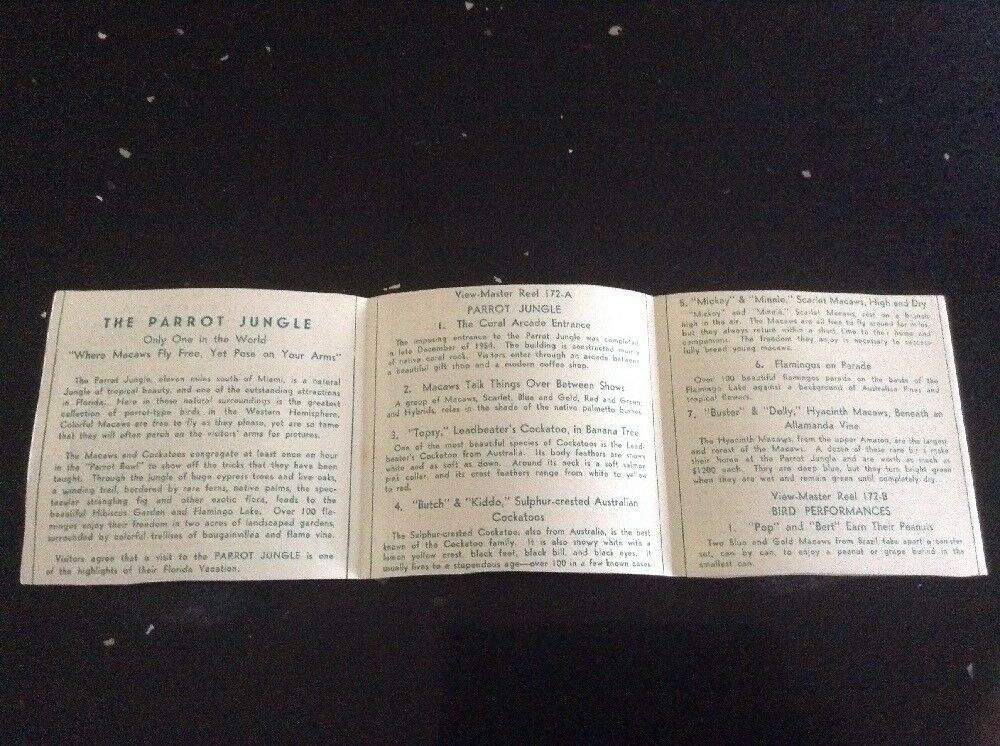 THE PARROT JUNGLE
Only One in the World
"Where Macaws Fly Free, Yet Pose on Your Arms"
The Parrot Jungle, eleven miles south of Miami, is a natural
Jungle of tropical beauty, and one of the outstanding attractions
in Florida. Here in these natural surroundings is the greatest
collection of parrot-type birds in the Western Hemisphere.
Colorful Macaws are free to fly as they please, yet are so tame
that they will often perch on the visitors' arms for pictures.
The Macaws and Cockatoos congregate at least once an hour
in the "Parrot Bowl" to show off the tricks that they have been
taught. Through the jungle of huge cypress trees and live oaks,
a winding trail, bordered by rare ferns, native palms, the spec-
tacular strangling fig and other exotic flora, leads to the
beautiful Hibiscus Garden and Flamingo Lake. Over 100 fla-
mingos enjoy their freedom in two acres of landscaped gardens,
surrounded by colorful trellises of bougainvillea and flame vine.
Visitors agree that a visit to the PARROT JUNGLE is one
of the highlights of their Florida Vacation.
View-Master Reel 172-A
PARROT JUNGLE
1. The Coral Arcade Entrance
The imposing entrance to the Parrot Jungle was completed
in late December of 1954. The building is constructed mostly
of native coral rock. Visitors enter through an arcade between
a beautiful gift shop and a modern coffee shop.
2. Macaws Talk Things Over Between Shows
A group of Macaws, Scarlet, Blue and Gold, Red and Green,
and Hybrids, relax in the shade of the native palmetto bushes
3. "Topsy," Leadbeater's Cockatoo, in Banana Tree
One of the most beautiful species of Cockatoos is the Lead-
beater's Cockatoo from Australia. Its body feathers are snowy
white and as soft as down. Around its neck is a soft salmon
pink collar, and its crest feathers range from white to yellow
to red.
4. "Butch" & "Kiddo," Sulphur-crested Australian
Cockatoos
The Sulphur-crested Cockatoo, also from Australia, is the best
known of the Cockatoo family. It is also snowy white with a
lemon yellow crest, black feet, black bill, and black eyes. It
usually lives to a stupendous age—over 100 in a few known cases.
5. "Mickey" & "Minnie," Scarlet Macaws, High and Dry
"Mickey" and "Minnie," Scarlet Macaws, rest on a branch
high in the air. The Macaws are all free to fly around for miles,
but they always return within a short time to their home and
companions. The freedom they enjoy is necessary to success-
fully breed young macaws.
6. Flamingos on Parade
Over 100 beautiful flamingos parade on the banks of the
Flamingo Lake against a background of Australian Pines and
tropical flowers.
7. "Buster" & "Dolly," Hyacinth Macaws, Beneath an
Allamanda Vine
The Hyacinth Macaws, from the upper Amazon, are the largest
and rarest of the Macaws. A dozen of these rare birds make
their home at the Parrot Jungle and are worth as much as
$1200 each. They are deep blue, but they turn bright green
when they are wet and remain green until completely dry.
View-Master Reel 172-B
BIRD PERFORMANCES
1. "Pop" and "Bert" Earn Their Peanuts
Two Blue and Gold Macaws from Brazil take apart a canister
set, can by can, to enjoy a peanut or grape buried in the
smallest can.